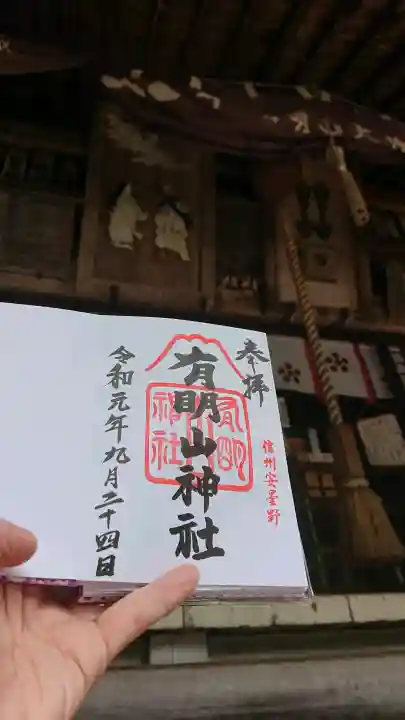 奉拝
信州安曇野
有明山神社
有明
神社
令和元年九月二十四日